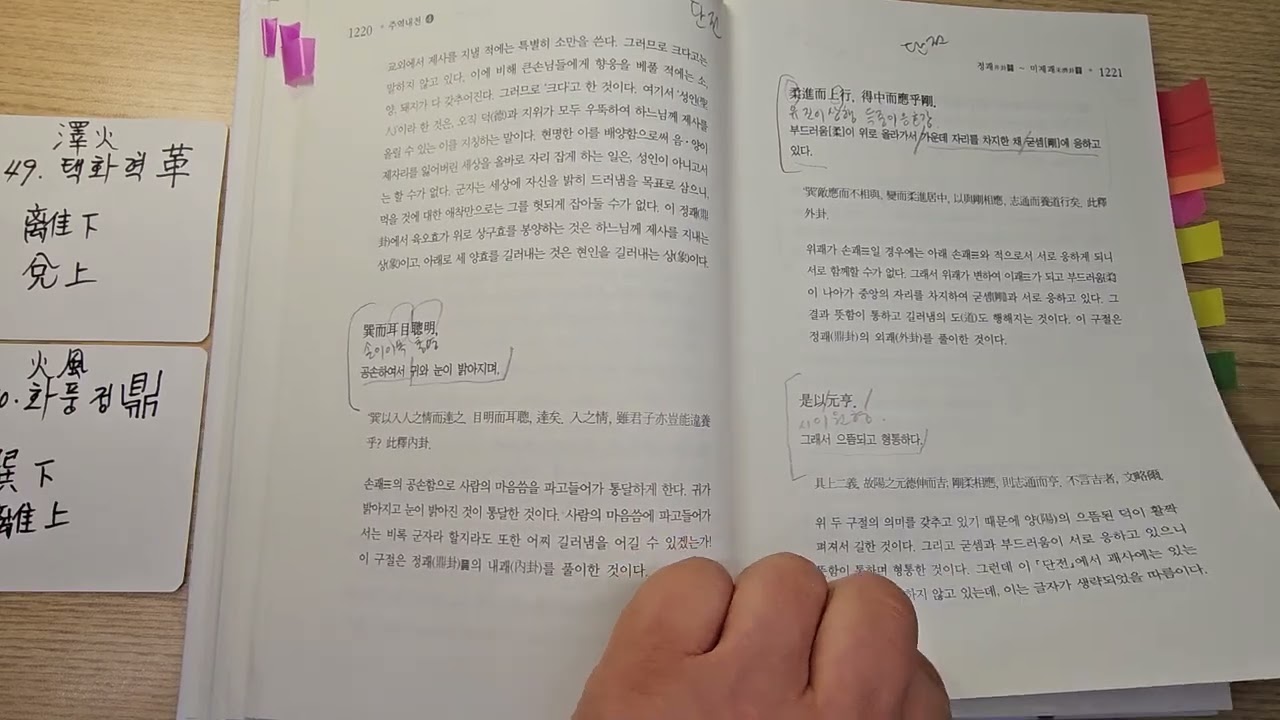 澤火
49. 택화혁 革
離下
兌上
火風
0. 화풍정 鼎
巽下
離上
1220 * 주역내전 4
단전
교외에서 제사를 지낼 적에는 특별히 소만을 쓴다. 그러므로 크다고는
말하지 않고 있다. 이에 비해 큰손님들에게 향응을 베풀 적에는 소,
양, 돼지가 다 갖추어진다. 그러므로 '크다'고 한 것이다. 여기서 '성인(聖
人)'이라 한 것은, 오직 덕(德)과 지위가 모두 우뚝하여 하느님께 제사를
올릴 수 있는 이를 지칭하는 말이다. 현명한 이를 배양함으로써 음·양이
제자리를 잃어버린 세상을 올바로 자리 잡게 하는 일은, 성인이 아니고서
는 할 수가 없다. 군자는 세상에 자신을 밝히 드러냄을 목표로 삼으니,
먹을 것에 대한 애착만으로는 그를 헛되게 잡아둘 수가 없다. 이 정괘(鼎
卦)에서 육오효가 위로 상구효를 봉양하는 것은 하느님께 제사를 지내는
상(象)이고, 아래로 세 양효를 길러내는 것은 현인을 길러내는 상(象)이다.
巽而耳目聰明,
손이이목 총명
공손하여서 귀와 눈이 밝아지며,
'巽'以入人之情而達之. 目明而耳聰, 達矣. 入之情, 雖君子亦豈能違養
乎? 此釋內卦.
손괘☴의 공손함으로 사람의 마음씀을 파고들어가 통달하게 한다. 귀가
밝아지고 눈이 밝아진 것이 통달한 것이다. 사람의 마음씀에 파고들어가
서는 비록 군자라 할지라도 또한 어찌 길러냄을 어길 수 있겠는가!
이 구절은 정괘(鼎卦)䷱의 내괘(內卦)를 풀이한 것이다.
단전
정괘井卦䷯ ~ 미제괘未濟卦䷿ * 1221
柔進而上行, 得中而應乎剛.
유진이상행 득중이응호강
부드러움[柔]이 위로 올라가서 가운데 자리를 차지한 채 굳셈[剛]에 응하고
있다.
'巽'敵應而不相與, 變而柔進居中, 以與剛相應, 志通而養道行矣. 此釋
外卦.
위괘가 손괘☴일 경우에는 아래 손괘☴와 적으로서 서로 응하게 되니
서로 함께할 수가 없다. 그래서 위괘가 변하여 이괘☲가 되고 부드러움(柔)
이 나아가 중앙의 자리를 차지하여 굳셈(剛)과 서로 응하고 있다. 그
결과 뜻함이 통하고 길러냄의 도(道)도 행해지는 것이다. 이 구절은
정괘(鼎卦)의 외괘(外卦)를 풀이한 것이다.
是以元亨.
시이원형.
그래서 으뜸되고 형통하다.
具上二義, 故陽之元德伸而吉; 剛柔相應, 則志通而亨. 不言吉者, 文略爾.
위 두 구절의 의미를 갖추고 있기 때문에 양(陽)의 으뜸된 덕이 활짝
펴져서 길한 것이다. 그리고 굳셈과 부드러움이 서로 응하고 있으니
뜻함이 통하며 형통한 것이다. 그런데 이 「단전」에서 괘사에는 있는
하지 않고 있는데, 이는 글자가 생략되었을 따름이다.